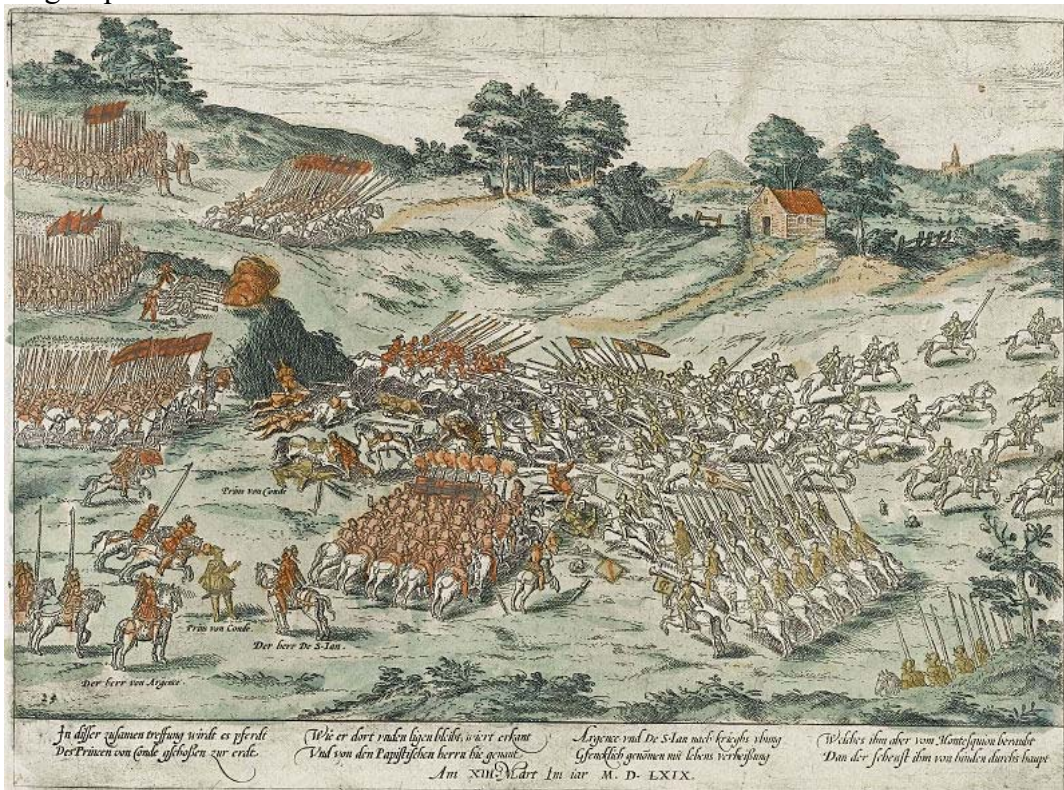 Prins von Conde
Prins von Conde.
Der herr De S-Ian.
Der herr von Argence.
24
In disser zusamen treffung wirdt es pferdt
Des Princen von Conde gschoßen zur erdt.
Wie er dort vnden ligen bleibt, wiert erkant
Vnd von den Papistischen herrn hie genant.
Argence vnd De S-Ian nach krieghs vbung
Gfencklich genomen mit lebens verheißung
Welches ihm aber vom Montesquion beraubt
Dan der scheust ihm von hinden durchs haupt
Am XIII Mart Im iar M. D. LXIX.